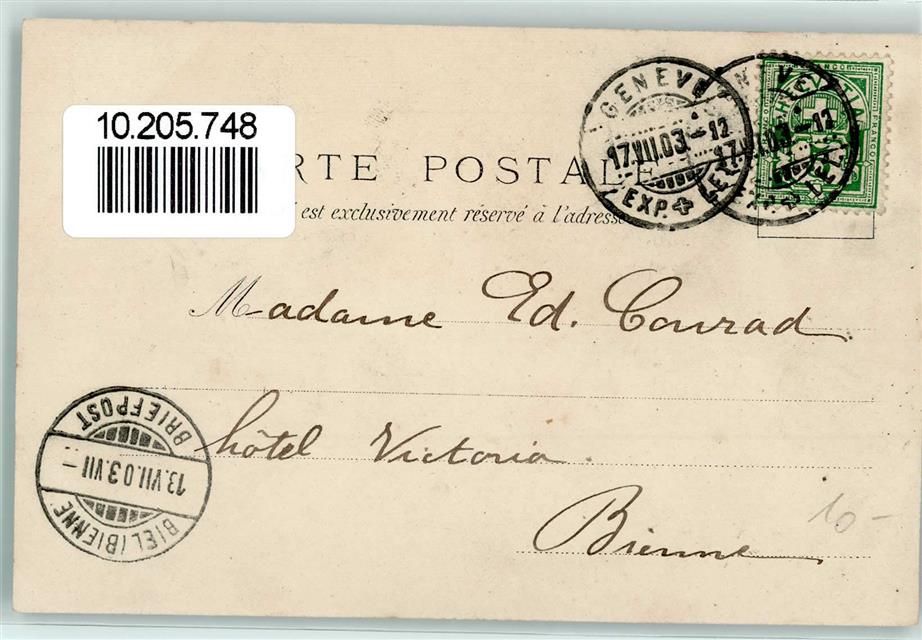 10.205.748
RTE POSTALE
est exclusivement réservé à l'adresse
GENEVE
17.VII.03.-12
EXP. LET.
Madame Ed. Conrad
hôtel Victoria.
Bienne
BRIEFPOST
13.VII.03.VII-
BIEL (BIENNE)
HELVETIA
FRANCO
10-